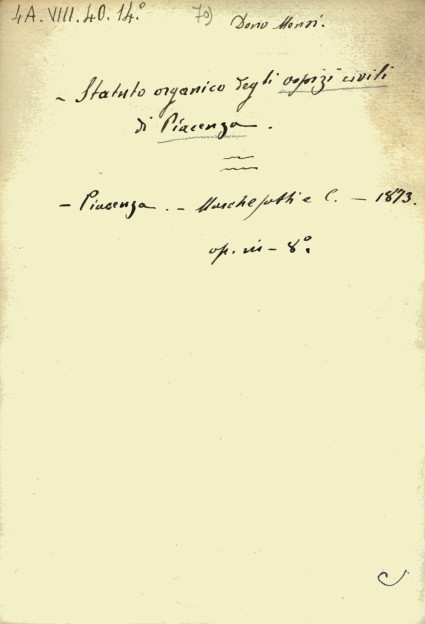 4A.VIII.40.14.° 70) Dono Monsi.
- Statuto organico degli ospizî civili
di Piacenza.
- Piacenza. - Marchesotti e C. - 1873.
op. in - 8°.